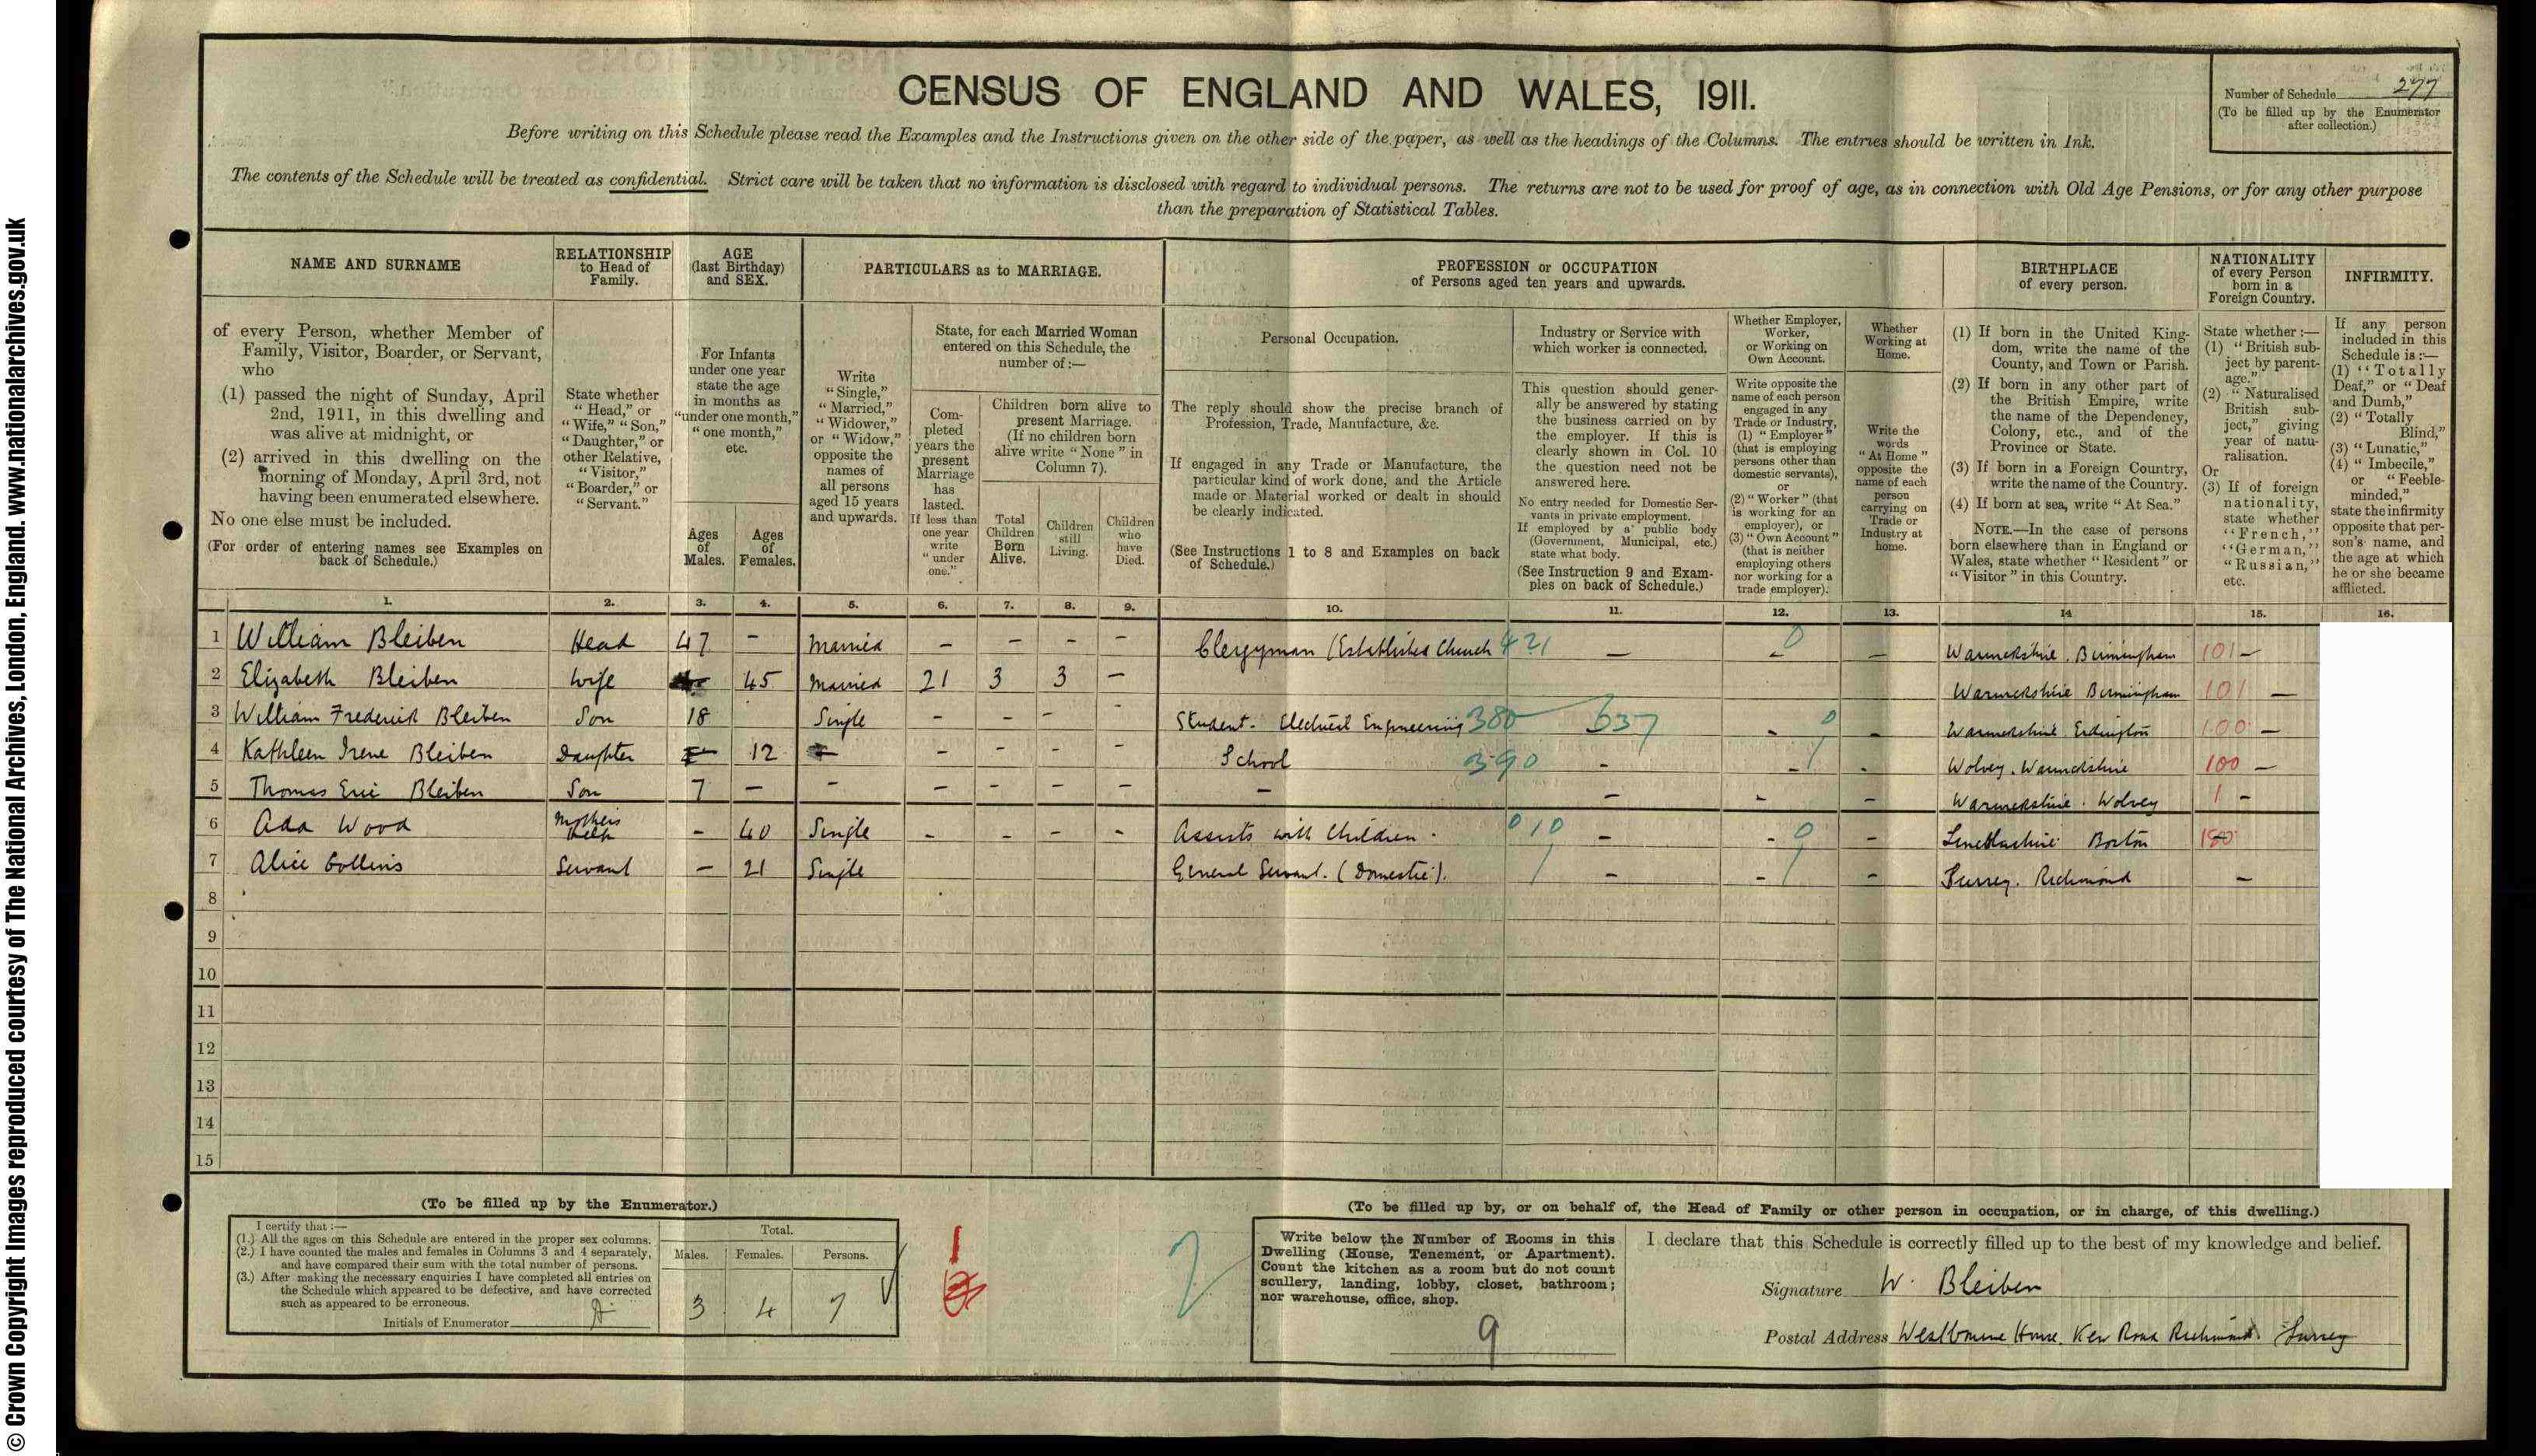 © Crown Copyright Images reproduced courtesy of The National Archives, London, England. www.nationalarchives.gov.uk
CENSUS OF ENGLAND AND WALES, 1911.
Number of Schedule 277
(To be filled up by the Enumerator
after collection.)
Before writing on this Schedule please read the Examples and the Instructions given on the other side of the paper, as well as the headings of the Columns. The entries should be written in Ink.
The contents of the Schedule will be treated as confidential. Strict care will be taken that no information is disclosed with regard to individual persons. The returns are not to be used for proof of age, as in connection with Old Age Pensions, or for any other purpose
than the preparation of Statistical Tables.
NAME AND SURNAME
of every Person, whether Member of
Family, Visitor, Boarder, or Servant,
who
(1) passed the night of Sunday, April
2nd, 1911, in this dwelling and
was alive at midnight, or
(2) arrived in this dwelling on the
morning of Monday, April 3rd, not
having been enumerated elsewhere.
No one else must be included.
(For order of entering names see Examples on
back of Schedule.)
RELATIONSHIP
to Head of
Family.
State whether
"Head," or
"Wife," "Son,"
"Daughter," or
other Relative,
"Visitor,"
"Boarder," or
"Servant."
AGE
(last Birthday)
and SEX.
For Infants
under one year
state the age
in months as
"under one month,"
"one month,"
etc.
Ages
of
Males.
Ages
of
Females.
PARTICULARS as to MARRIAGE.
Write
"Single,"
"Married,"
"Widower,"
or "Widow,"
opposite the
names of
all persons
aged 15 years
and upwards.
State, for each Married Woman
entered on this Schedule, the
number of:—
Com-
pleted
years the
present
Marriage
has
lasted.
If less than
one year
write
"under
one."
Children born alive to
present Marriage.
(If no children born
alive write "None" in
Column 7).
Total
Children
Born
Alive.
Children
still
Living.
Children
who
have
Died.
PROFESSION or OCCUPATION
of Persons aged ten years and upwards.
Personal Occupation.
The reply should show the precise branch of
Profession, Trade, Manufacture, &c.
If engaged in any Trade or Manufacture, the
particular kind of work done, and the Article
made or Material worked or dealt in should
be clearly indicated.
(See Instructions 1 to 8 and Examples on back
of Schedule.)
Industry or Service with
which worker is connected.
This question should gener-
ally be answered by stating
the business carried on by
the employer. If this is
clearly shown in Col. 10
the question need not be
answered here.
No entry needed for Domestic Ser-
vants in private employment.
If employed by a public body
(Government, Municipal, etc.)
state what body.
(See Instruction 9 and Exam-
ples on back of Schedule.)
Whether Employer,
Worker,
or Working on
Own Account.
Write opposite the
name of each person
engaged in any
Trade or Industry,
(1) "Employer"
(that is employing
persons other than
domestic servants),
or
(2) "Worker" (that
is working for an
employer), or
(3) "Own Account"
(that is neither
employing others
nor working for a
trade employer).
Whether
Working at
Home.
Write the
words
"At Home"
opposite the
name of each
person
carrying on
Trade or
Industry at
home.
BIRTHPLACE
of every person.
(1) If born in the United King-
dom, write the name of the
County, and Town or Parish.
(2) If born in any other part of
the British Empire, write
the name of the Dependency,
Colony, etc., and of the
Province or State.
(3) If born in a Foreign Country,
write the name of the Country.
(4) If born at sea, write "At Sea."
NOTE.—In the case of persons
born elsewhere than in England or
Wales, state whether "Resident" or
"Visitor" in this Country.
NATIONALITY
of every Person
born in a
Foreign Country.
State whether:—
(1) "British sub-
ject by parent-
age."
(2) "Naturalised
British sub-
ject," giving
year of natu-
ralisation.
Or
(3) If of foreign
nationality,
state whether
"French,"
"German,"
"Russian,"
etc.
INFIRMITY.
If any person
included in this
Schedule is:—
(1) "Totally
Deaf," or "Deaf
and Dumb,"
(2) "Totally
Blind,"
(3) "Lunatic,"
(4) "Imbecile,"
or "Feeble-
minded,"
state the infirmity
opposite that per-
son's name, and
the age at which
he or she became
afflicted.
1. 2. 3. 4. 5. 6. 7. 8. 9. 10. 11. 12. 13. 14 15. 16.
1 William Bleiben Head 47 — Married — — — — Clergyman (Established Church 421 — 0 — Warwickshire. Birmingham 101 —
2 Elizabeth Bleiben Wife 45 Married 21 3 3 — Warwickshire Birmingham 101 —
3 William Frederick Bleiben Son 18 Single — — — — Student. Electrical Engineering 380 637 - 0 - Warwickshire Erdington 100 —
4 Kathleen Irene Bleiben Daughter 12 — — — — School 390 - - - Wolvey. Warwickshire 100 —
5 Thomas Eric Bleiben Son 7 — — — — — — — — - — Warwickshire. Wolvey 1 -
6 Ada Wood Mothers help — 40 Single — — — — Assists with Children. 010 — - 0 — Lincolnshire Boston
7 Alice Collins Servant — 21 Single General Servant. (Domestic). — - — Surrey. Richmond —
8
9
10
11
12
13
14
15
(To be filled up by the Enumerator.)
I certify that:—
(1.) All the ages on this Schedule are entered in the proper sex columns.
(2.) I have counted the males and females in Columns 3 and 4 separately,
and have compared their sum with the total number of persons.
(3.) After making the necessary enquiries I have completed all entries on
the Schedule which appeared to be defective, and have corrected
such as appeared to be erroneous.
Initials of Enumerator
Total.
Males. Females. Persons.
3 4 7
1
2
(To be filled up by, or on behalf of, the Head of Family or other person in occupation, or in charge, of this dwelling.)
Write below the Number of Rooms in this
Dwelling (House, Tenement, or Apartment).
Count the kitchen as a room but do not count
scullery, landing, lobby, closet, bathroom;
nor warehouse, office, shop.
9
I declare that this Schedule is correctly filled up to the best of my knowledge and belief.
Signature W. Bleiben
Postal Address Westbourne House. Kew Road Richmond. Surrey